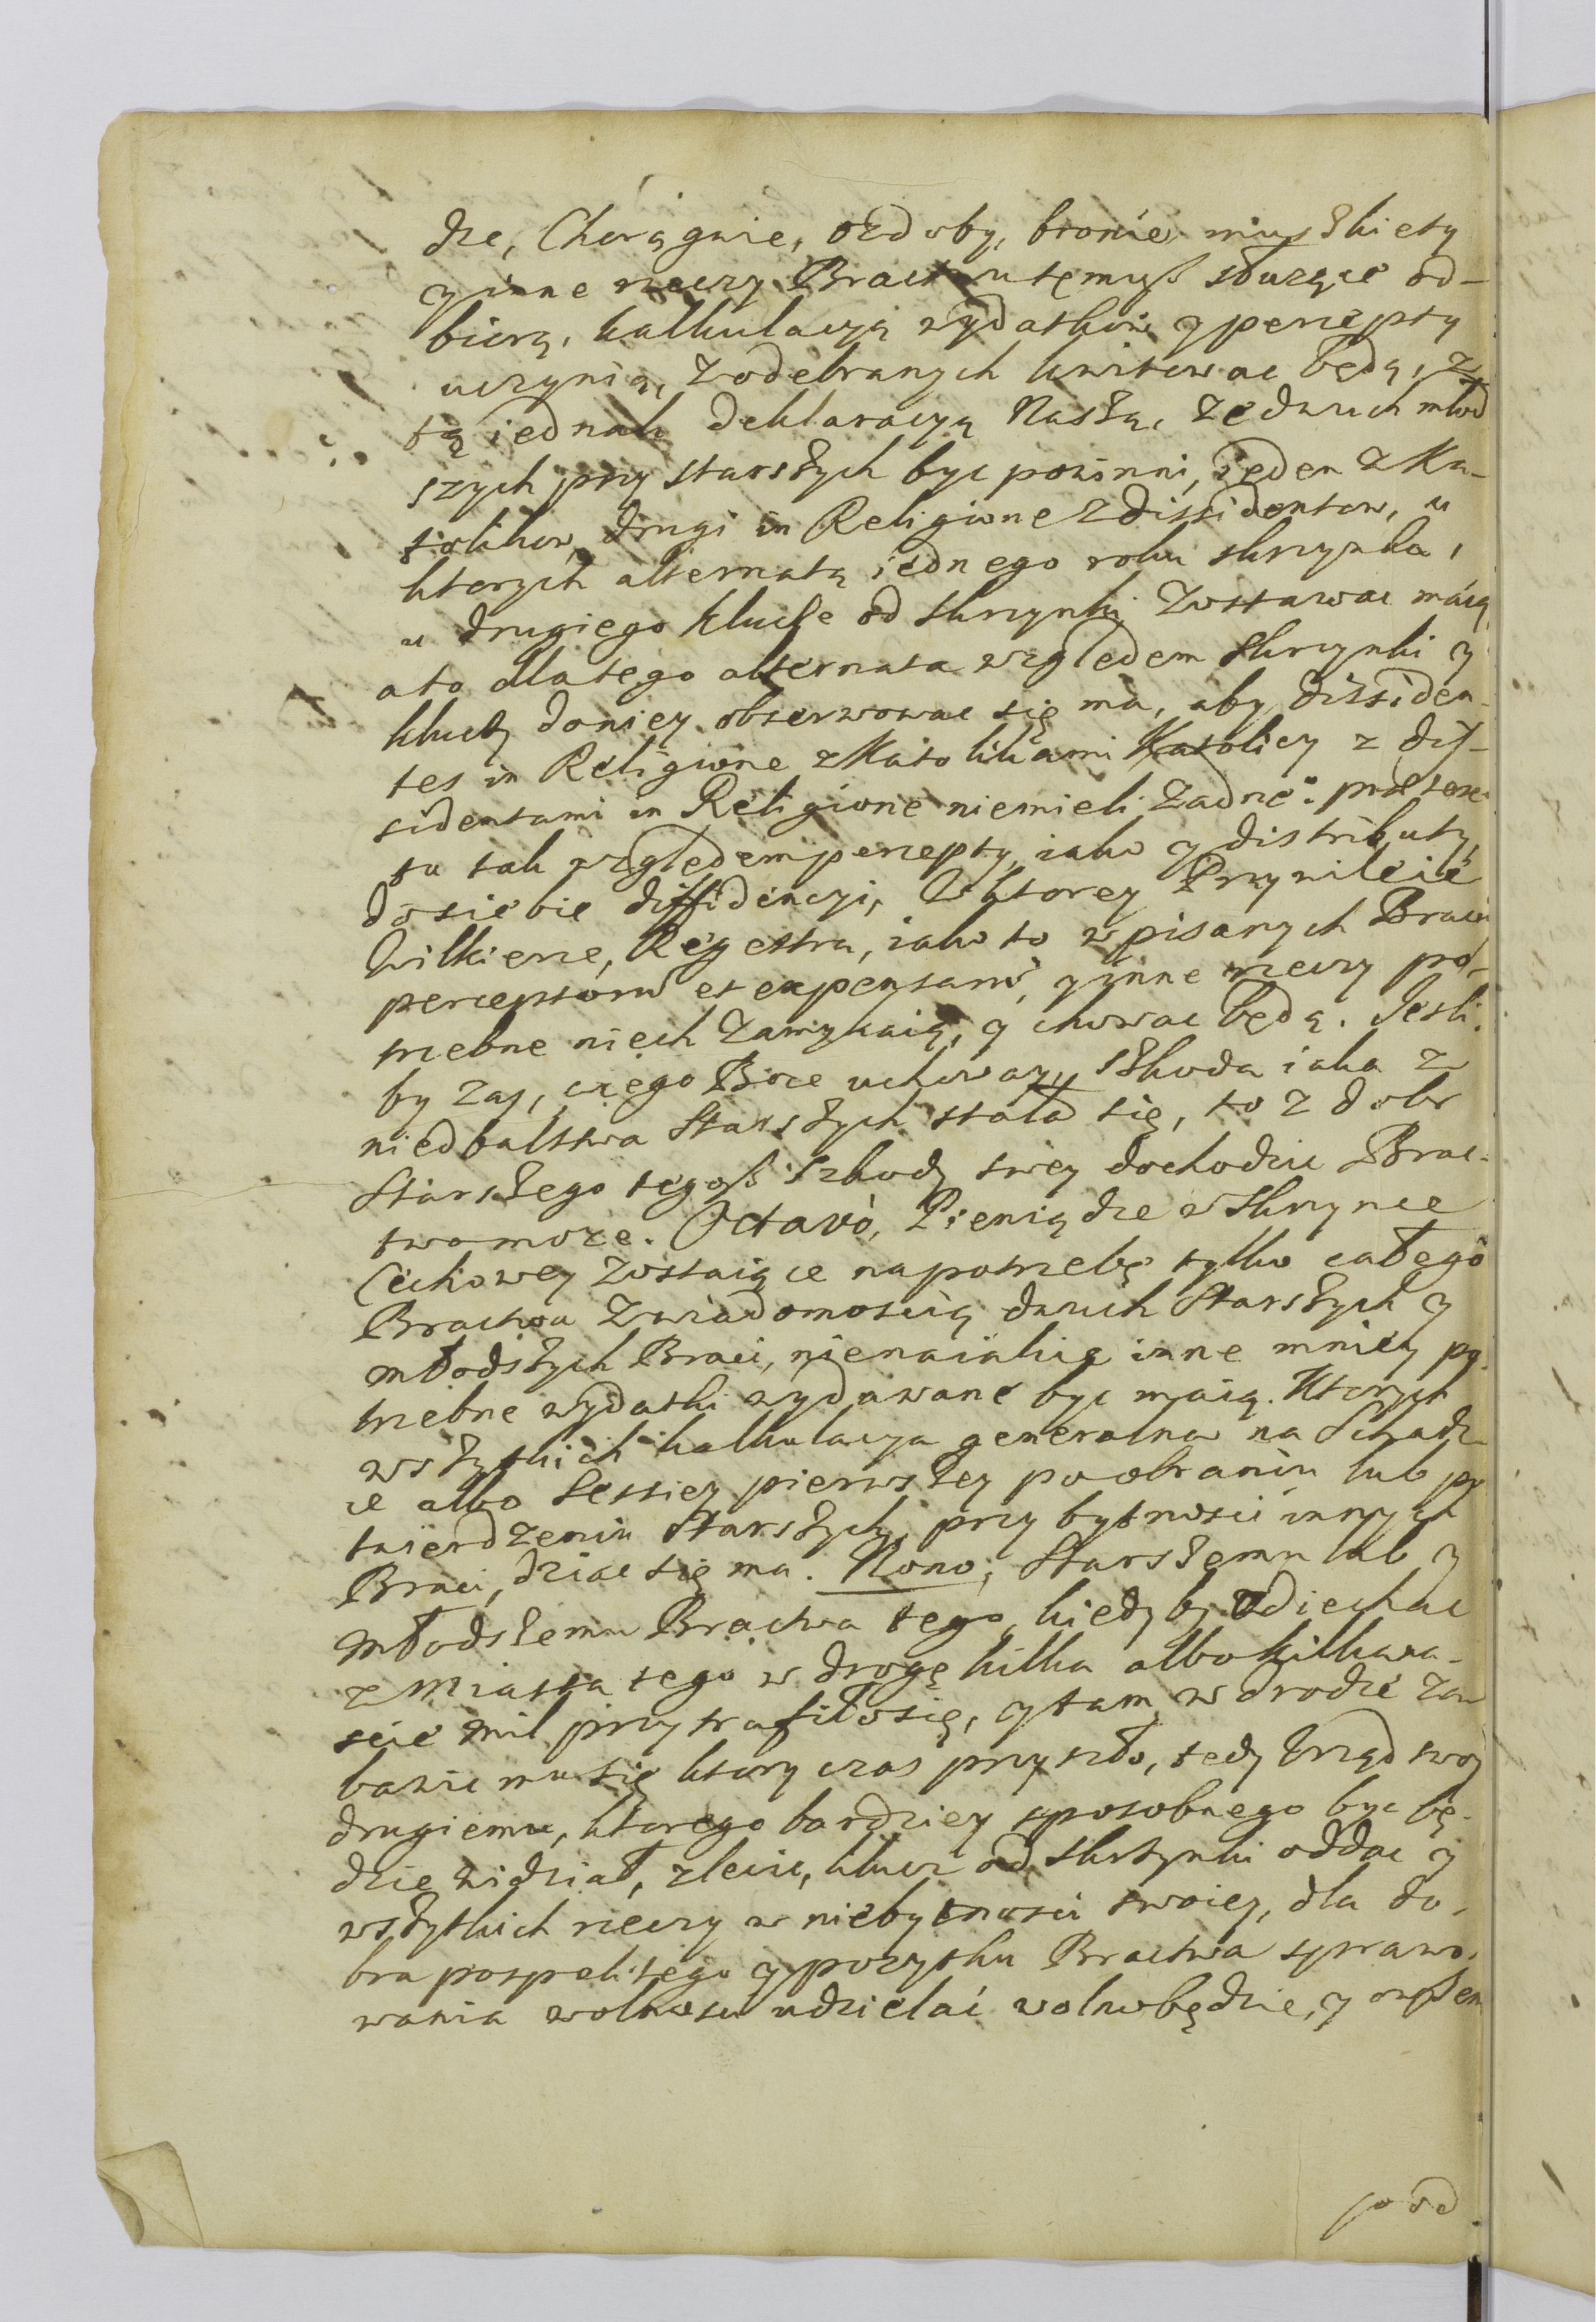 dze, Chorągwie, ozdoby, bronie, muszkiety
y inne rzeczy Bractwu temuß słuzące od-
biorą, kalkulacyą wydatków y percepty
uczynią, z odebranych kwitować będą, z
tą iednak deklaracyą Naszą, ze dwuch młod
szych przy starszych byc powinni, ieden z Ka-
tolikow, drugi in Religione z dissidentow, u
ktorych alternatą iednego roku skrzynka,
u drugiego klucze od skrzynki zostawac maią,
a to dlatego alternata względem skrzynki y
kluczy doniey obserwowac się ma, aby dissiden-
tes in Religione z Katolikami Katolicy z dis-
sidentami in Religione niemieli zadne: praetex
tu tak względem percepty, iako y distributy,
do siebie diffidencyi, W ktorey Przywileie
Wilkierze, Regestra, iako to wpisanych Braci,
perceptorum et expensarum, y inne rzeczy po-
trzebne niech zamykaią, y chowac będą. Jesli-
by zas, czego Boze uchoway, szkoda iaka z
niedbalstwa Starszych stała się, to z dobr
Starszego tegoß szkody swey dochodzic Brac-
two moze. Octavò, Pieniądze w Skrzynce
Cechowey zostaiące na potrzebę tylko całego
Bractwa z wiadomoscią dwuch Starszych y
młodszych Braci, nie na iakie inne mniey po-
trzebne wydatki wydawane byc maią. Ktorych
wszytkich kalkulacya generalna na Schadz-
ce albo Sessiey pierwszey po obraniu lub po
twierdzeniu Starszych, przy bytnosci innych
Braci, dziac się ma. Nono, Starszemu lub y
młodszemu Bractwa tego, kiedyby odiechac
z Miasta tego w drogę kilka albo kilkana-
scie mil przytrafiło się, y tam w drodze za
bawic mu się ktory czas przyszło, tedy Urząd swoy
drugiemu, ktorego bardziey sposobnego byc bę-
dzie widział, zlecic, klucz od skrzynki oddac y
wszytkich rzeczy w niebytnosci swoiey, dla do-
bra pospolitego y pozytku Bractwa sprawo-
wania wolnosci udzielać wolno będzie, y owszem
pod